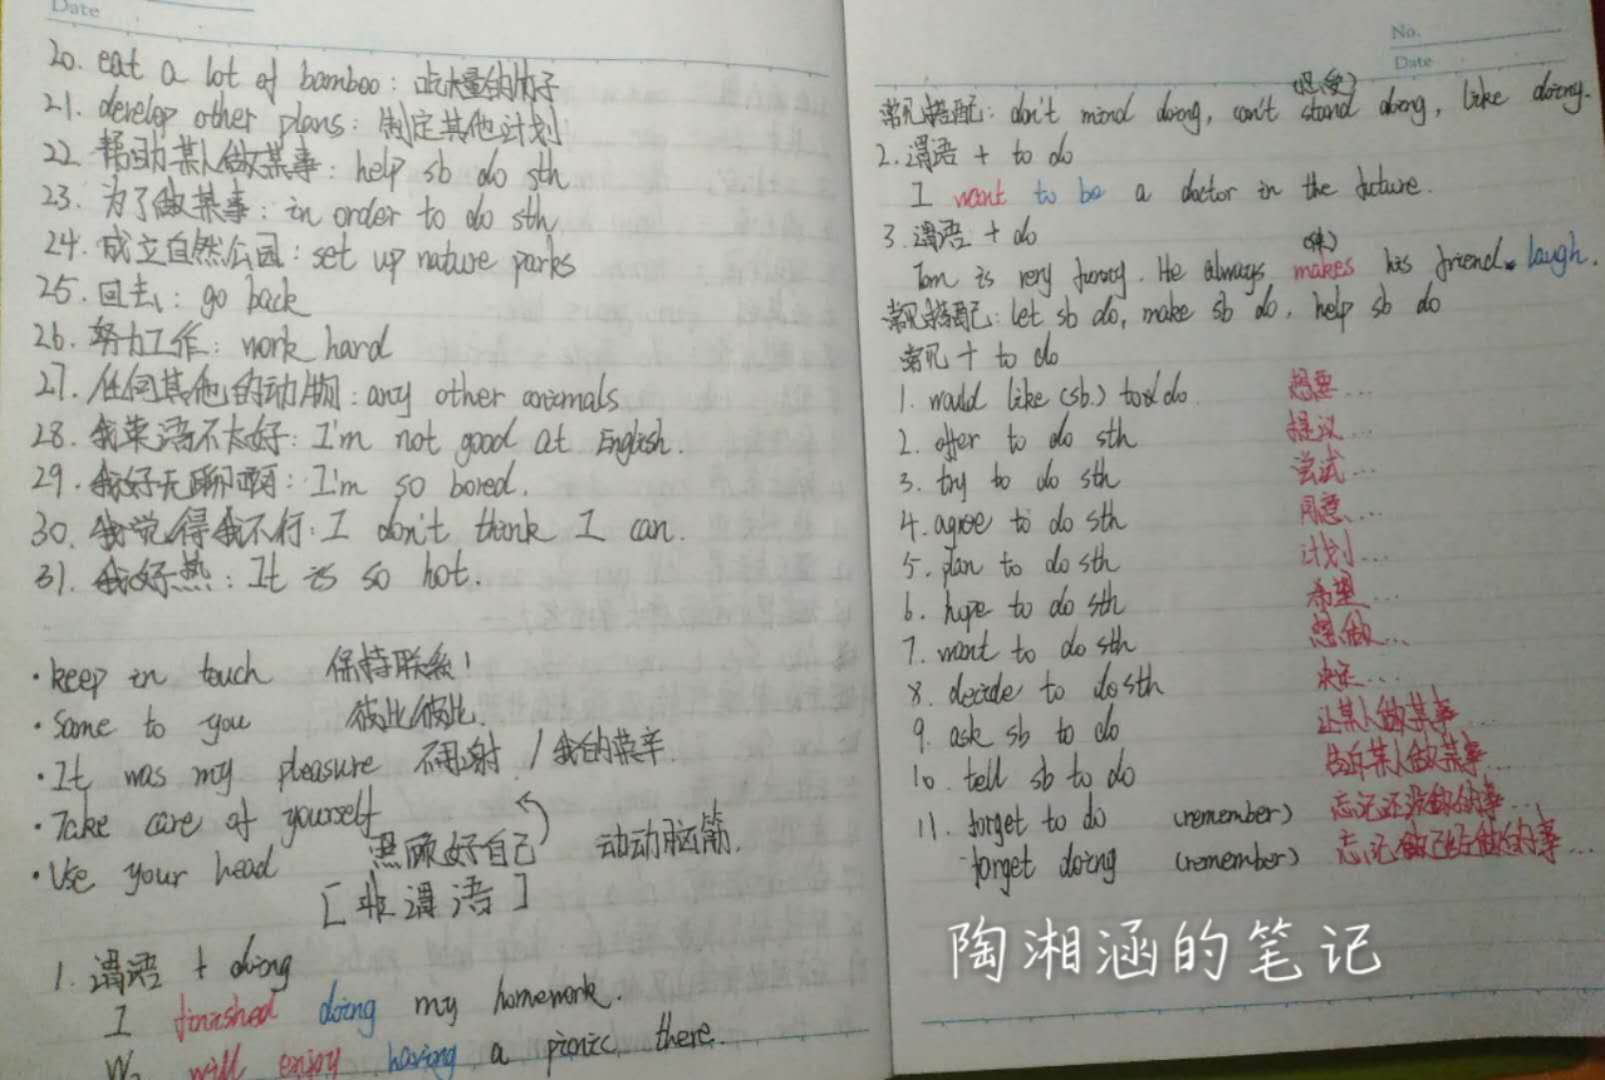 Date
20. eat a lot of bamboo：吃大量的竹子
21. develop other plans：制定其他计划
22. 帮助某人做某事：help sb do sth
23. 为了做某事：in order to do sth
24. 成立自然公园：set up nature parks
25. 回去：go back
26. 努力工作：work hard
27. 任何其他的动物：any other animals
28. 我英语不太好：I'm not good at English.
29. 我好无聊啊：I'm so bored.
30. 我觉得我不行：I don't think I can.
31. 我好热：It is so hot.
·keep in touch 保持联系！
·Same to you 彼此彼此.
·It was my pleasure 不用谢 / 我的荣幸
·Take care of yourself
照顾好自己 动动脑筋.
·Use your head
[非谓语]
1. 谓语 + doing
I finished doing my homework.
We will enjoy having a picnic there.
No.
Date
(忍受)
常见搭配：don't mind doing, can't stand doing, like doing.
2. 谓语 + to do
I want to be a doctor in the future.
3. 谓语 + do
Tom is very funny. He always makes his friend laugh.
常见搭配：let sb do, make sb do, help sb do
常见 + to do
1. would like (sb.) to do. 想要…
2. offer to do sth 提议…
3. try to do sth 尝试…
4. agree to do sth 同意…
5. plan to do sth 计划…
6. hope to do sth 希望…
7. want to do sth 想做…
8. decide to do sth 决定…
9. ask sb to do 让某人做某事…
10. tell sb to do 告诉某人做某事…
11. forget to do (remember) 忘记还没做的事…
forget doing (remember) 忘记做已经做的事…
陶湘涵的笔记